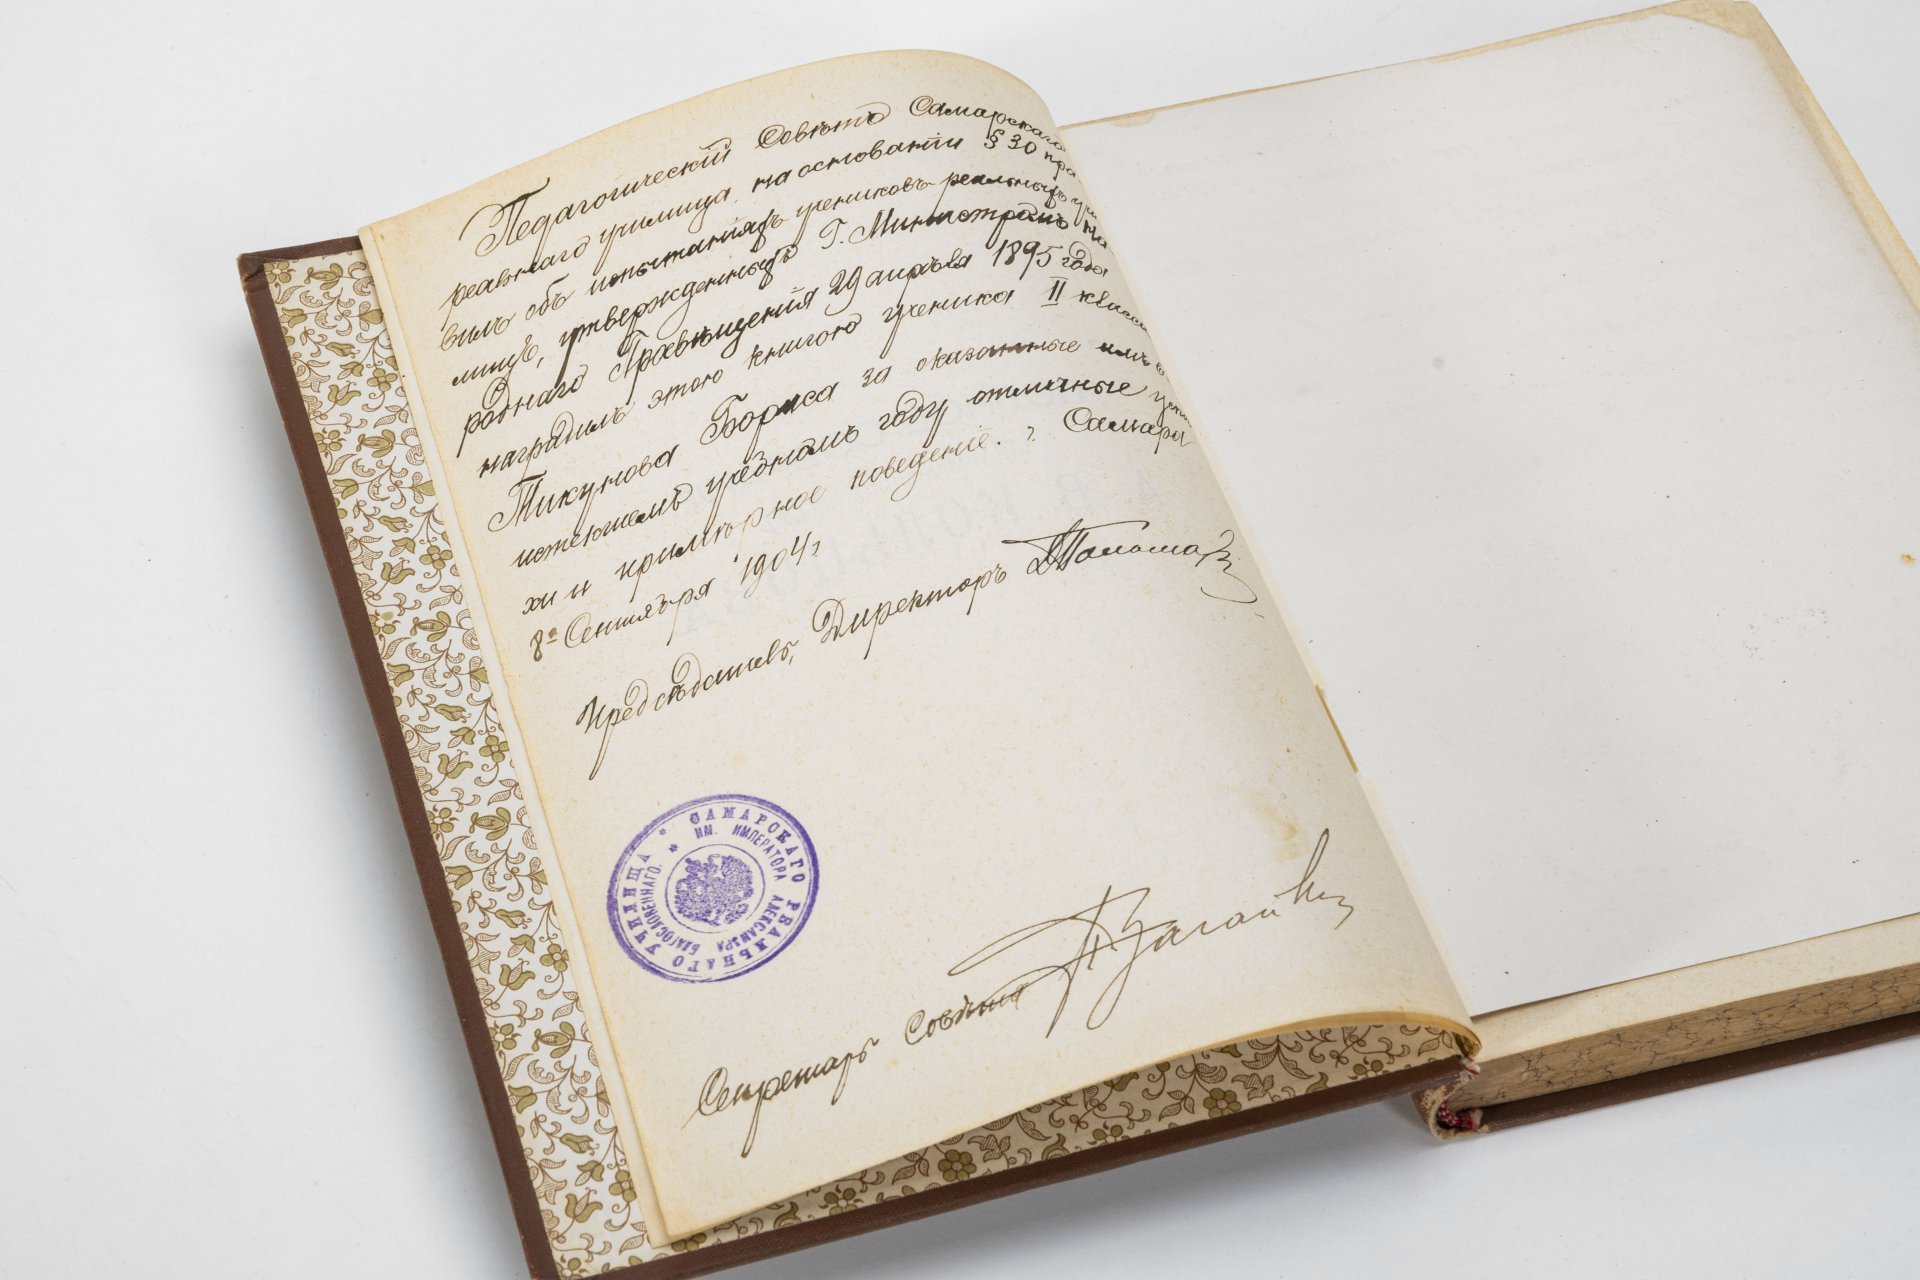 Педагогическій Совѣтъ Самарскаго
реальнаго училища, на основаніи § 30 пра
вилъ объ испытаніяхъ учениковъ реальныхъ учи
лищъ, утвержденныхъ Г. Министромъ На
роднаго Просвѣщенія 29 апрѣля 1895 года
наградилъ этою книгою ученика II класса
Тикунова Бориса за оказанные имъ въ
истекшемъ учебномъ году отличные успѣ
хи и примѣрное поведеніе. г. Самара
8го Сентября 1904 г
Предсѣдатель, Директоръ
САМАРСКАГО РЕАЛЬНАГО УЧИЛИЩА
ИМ. ИМПЕРАТОРА АЛЕКСАНДРА БЛАГОСЛОВЕННАГО.
Секретарь Совѣта